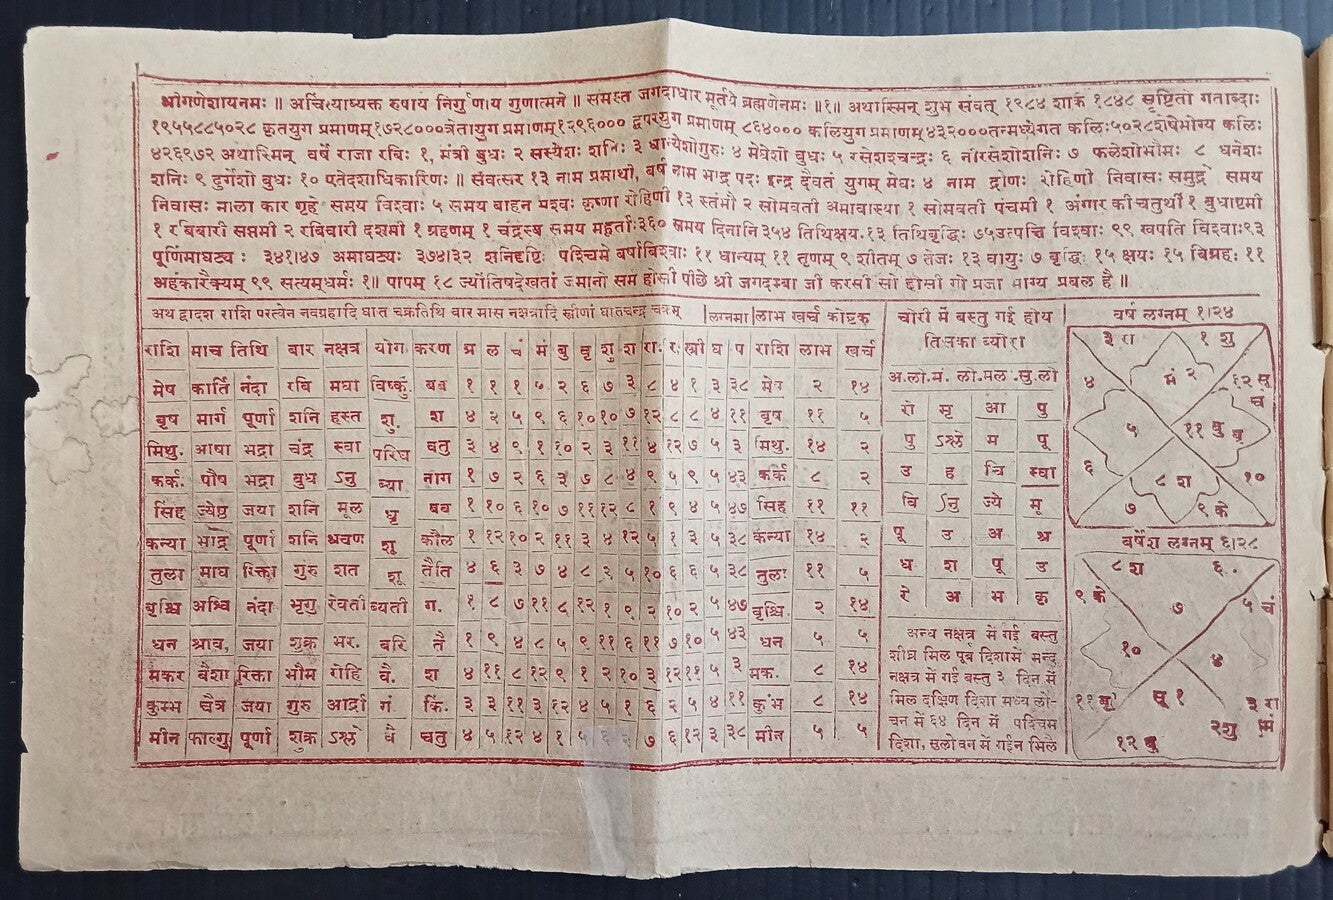 श्रीगणेशायनमः ॥ अचिंत्याव्यक्त रुपाय निर्गुणाय गुणात्मने ॥ समस्त जगदाधार मूर्तये ब्रह्मणेनमः ॥१॥ अथास्मिन् शुभ संवत् १९८४ शाके १८४८ सृष्टितो गताब्दाः
१९५५८८५०२८ कृतयुग प्रमाणम्१७२८०००त्रेतायुग प्रमाणम्१२९६००० द्वपरयुग प्रमाणम् ८६४००० कलियुग प्रमाणम्४३२०००तन्मध्येगत कलिः५०२८शेषेभोग्य कलिः
४२६९७२ अथास्मिन् वर्षे राजा रविः १, मंत्री बुधः २ सस्येशः शनिः ३ धान्येशोगुरुः ४ मेघेशो बुधः ५ रसेशश्चन्द्रः ६ नीरसेशोशनिः ७ फलेशोभौमः ८ धनेशः
शनिः ९ दुर्गेशो बुधः १० एतेदशाधिकारिणः ॥ संवत्सर १३ नाम प्रमाथी, वर्ष नाम भाद्र पदः इन्द्र दैवतं युगम् मेघः ४ नाम द्रोणः रोहिणी निवासः समुद्रे समय
निवासः माला कार गृहे समय विश्वाः ५ समय बाहन मश्वः कृष्णा रोहिणी १३ स्तंभौ २ सोमवती अमावास्या १ सोमवती पंचमी १ अंगार की चतुर्थी १ बुधाष्टमी
१ रबिबारी सप्तमी २ रविवारी दशमी १ ग्रहणम् १ चंद्रस्य समय महूर्ताः३६० समय दिनानि ३५४ तिथिक्षय.१३ तिथिवृद्धिः ७५उत्पत्ति विश्वाः ९९ खपति विश्वाः९३
पूर्णिमाघट्यः ३४१।४७ अमाघट्यः ३७४।३२ शनिदृष्टिः पश्चिमे बर्षाबिश्वाः ११ धान्यम् ११ तृणम् ९ शीतम् ७ तेजः १३ वायुः ७ वृद्धिः १५ क्षयः १५ बिग्रहः ११
अहंकारैक्यम् ९९ सत्यमधर्मः १॥ पापम् १८ ज्योतिषदेखतां जमानो सम होसी पीछे श्री जगदम्बा जी करसी सो होसी गो प्रजा भाग्य प्रबल है ॥
अथ द्वादश राशि परत्वेन नवग्रहादि घात चक्रतिथि वार मास नक्षत्रादि स्त्रीणां घातचन्द्र चक्रम्
राशि माच तिथि बार नक्षत्र योग करण प्र ल चं मं बु वृ शु श रा. र. स्त्री घ प
मेष कार्ति नंदा रबि मघा विष्कुं. बव १ १ १ ५ २ ६ ७ ३ ८ ४ १ ३ ३८
बृष मार्ग पूर्णा शनि हस्त शु. श ४ २ ५ ९ ६ १० १० ७ १२ ८ ८ ४ ११
मिथु. आषा भद्रा चंद्र स्वा परिघ चतु ३ ४ ९ १ १० २ ३ ११ ४ १२ ७ ५ ३
कर्क. पौष भद्रा बुध ऽनु ब्या नाग १ ७ २ ६ ३ ७ ८ ४ ९ ५ ९ ५ ४३
सिंह ज्येष्ठ जया शनि मूल धृ बव १ १० ६ १० ७ ११ १२ ८ १ ९ ४ ५ ४७
कन्या भाद्रे पूर्णा शनि श्रवण शू कौल १ १२ १० २ ११ ३ ४ १२ ५ १ ३ ५ ३८
तुला माघ रिक्ता गुरु शत शू तैति ४ ६ ३ ७ ४ ८ ९ ५ १० ६ ६ ५ ३८
बृश्चि अश्वि नंदा भृगु रेवती ब्यती ग. १ ८ ७ ११ ८ १२ १ ९ २ १० २ ५ ४७
धन श्राव, जया शुक्र भर. बरि तै १ ९ ४ ८ ५ ९ ११ ६ ११ ७ १० ५ ४३
मकर बैशा रिक्ता भौम रोहि वै. श ४ ११ ८ १२ ९ १ २ १० ३ १२ ११ ५ ३
कुम्भ चैत्र जया गुरु आर्द्रा गं किं. ३ ३ ११ ३ १२ ४ ५ १ ६ २ ५ ४ ११
मीन फाल्गु पूर्णा शुक्र ऽश्ले वै चतु ४ ५ १२ ४ १ ५ ६ ७ ६ १२ ३ ३८
लग्नमा लाभ खर्च कोष्टक
राशि लाभ खर्च
मेष २ १४
बृष ११ ५
मिथु. १४ २
कर्क ८ २
सिंह ११ ११
कन्या १४ २
तुलः ११ ५
बृश्चि. २ १४
धन ५ ५
मक. ८ १४
कुंभ ८ १४
मीन ५ ५
चोरी में बस्तु गई होय
तिसका ब्योरा
अ.लो. मं. लो. मल. सु.लो
रो मृ आ पु
पु ऽश्ले म पू
उ ह चि स्वा
बि ऽनु ज्ये मू
पू उ अ श्र
ध श पू उ
रे अ भ कृ
अन्ध नक्षत्र में गई बस्तु
शीघ्र मिल पूर्व दिशामें मन्द
नक्षत्र में गई बस्तु ३ दिन में
मिल दक्षिण दिशा मध्य लो-
चन में ६४ दिन में पश्चिम
दिशा, सुलोचन में गईन मिले
वर्ष लग्नम् १।२४
३ रा १ शु
४ मं २ १२ सू चं
५ ११ बु बृ
६ ८ श १०
७ ९ के
बर्षेश लग्नम् ६।२८
८ श ६ .
९ के ७ ५ चं
१० ४
११ बु सू १ ३ रा
१२ बृ २शु मं